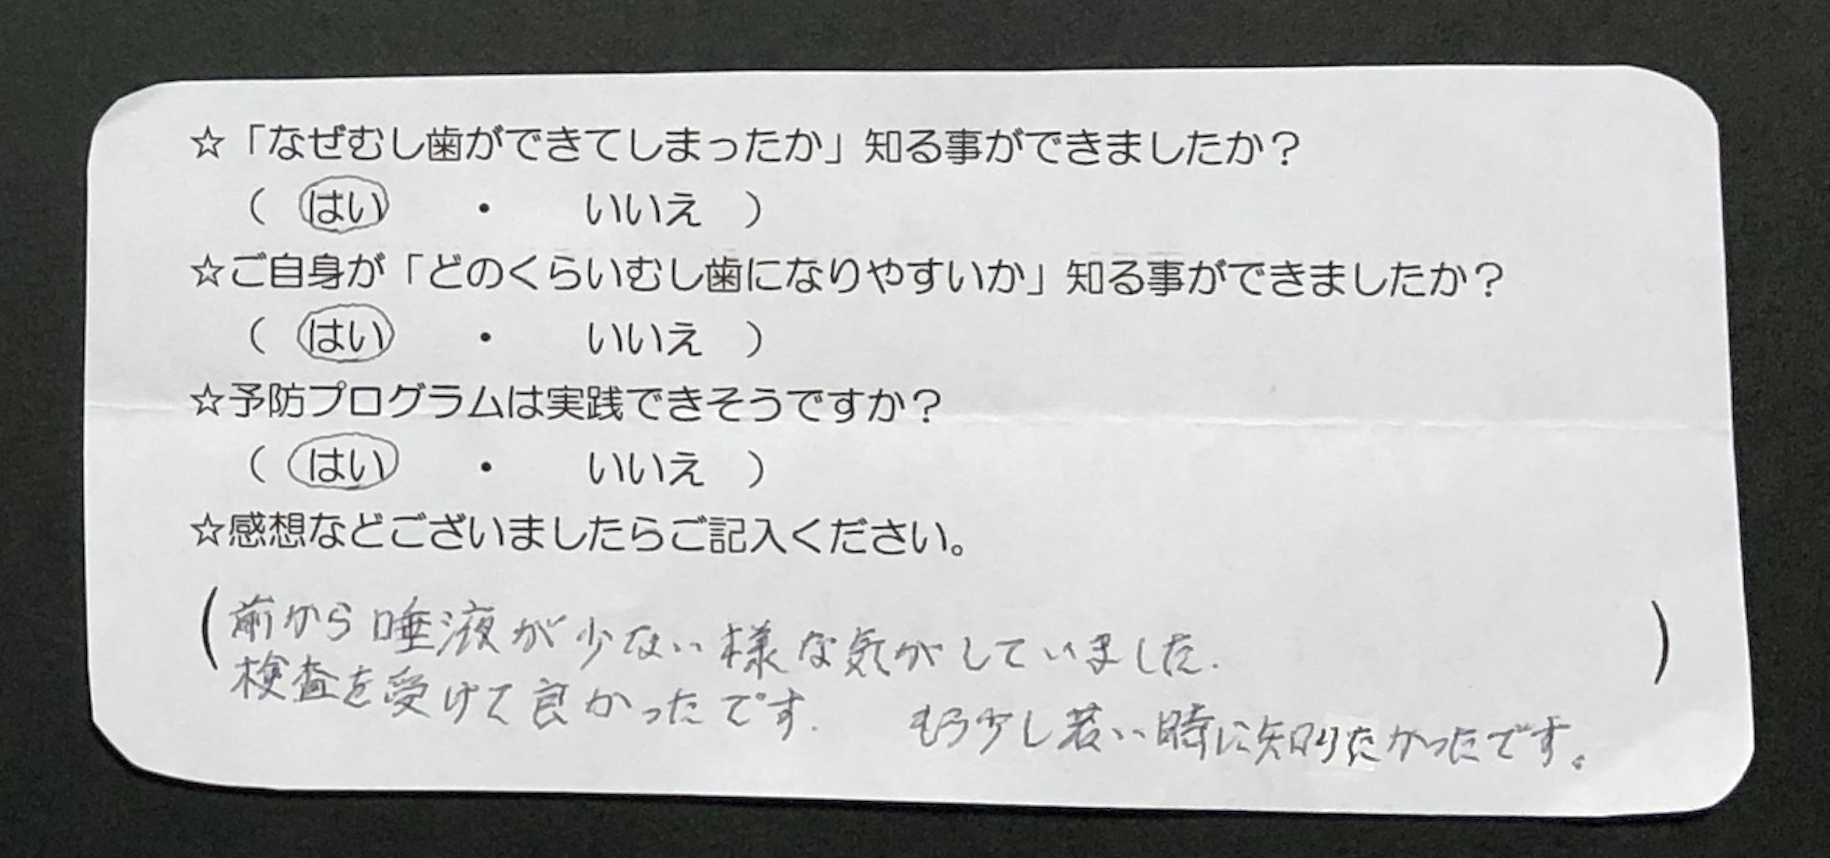 ☆「なぜむし歯ができてしまったか」知る事ができましたか？
（　はい　・　いいえ　）
☆ご自身が「どのくらいむし歯になりやすいか」知る事ができましたか？
（　はい　・　いいえ　）
☆予防プログラムは実践できそうですか？
（　はい　・　いいえ　）
☆感想などございましたらご記入ください。
（前から唾液が少ない様な気がしていました.
検査を受けて良かったです.　もう少し若い時に知りたかったです。）